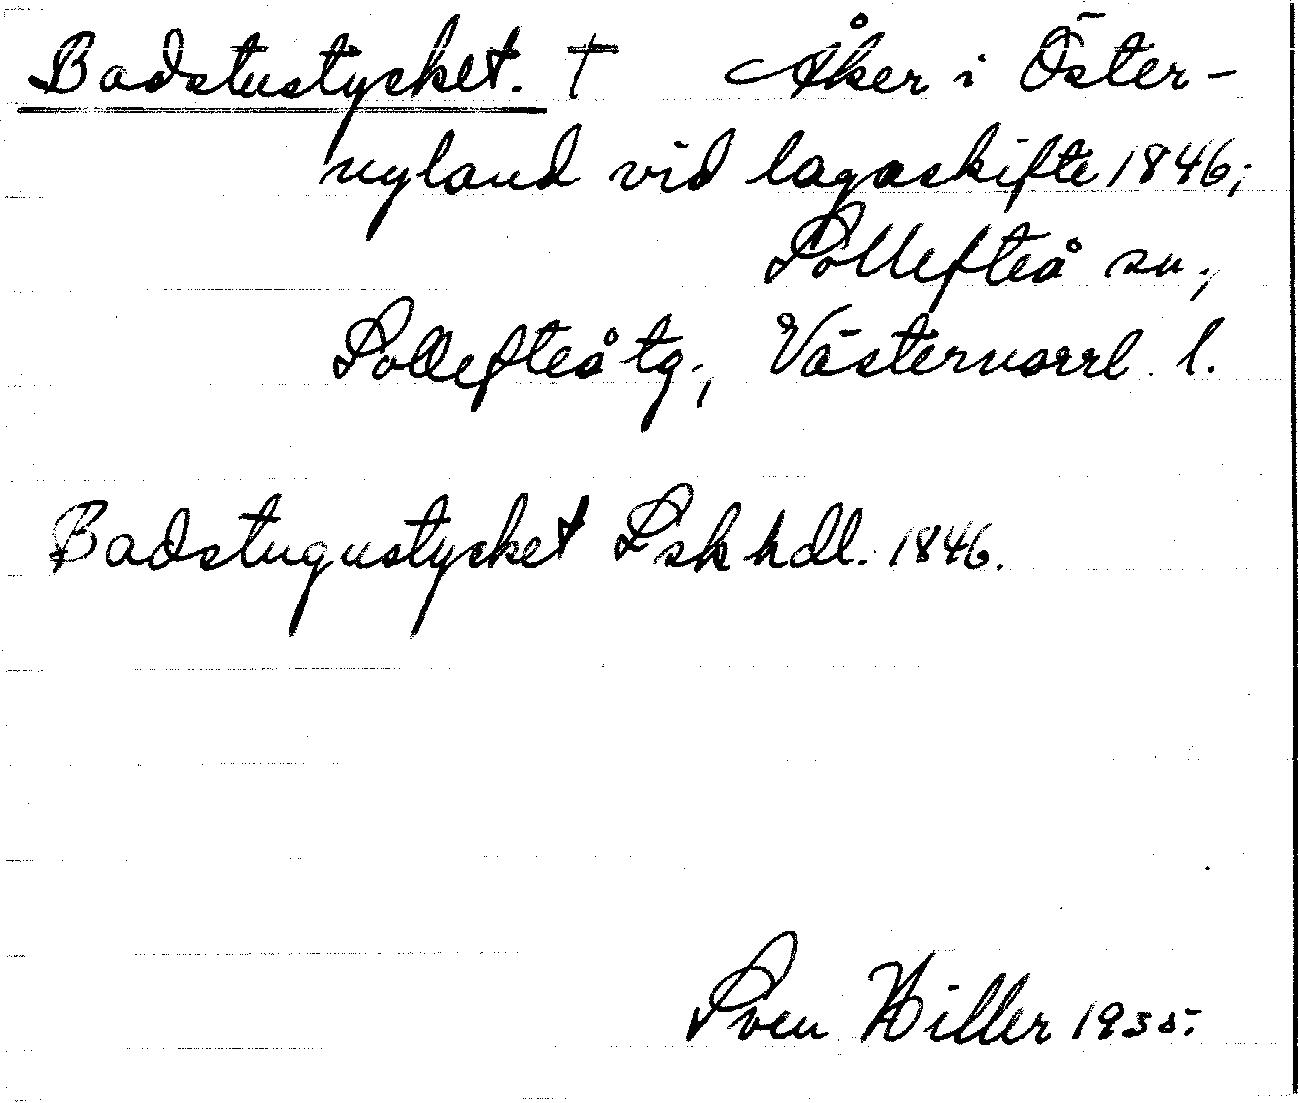 Badstustycket. † Åker i Öster-
nyland vid lagaskifte 1846;
Sollefteå sn.,
Sollefteå tg., Västernorrl. l.
Badstugustycket Lskhdl. 1846.
Sven Hiller 1935.